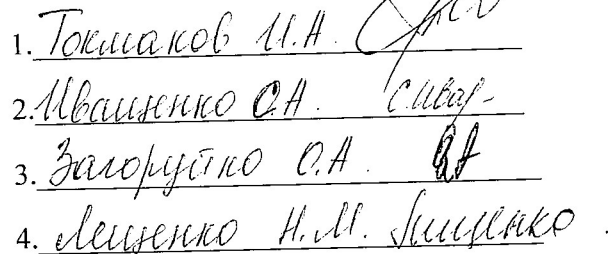 1. Токмаков И.А.
2. Иващенко О.А.
3. Загоруйко О.А.
4. Лещенко Н.М.